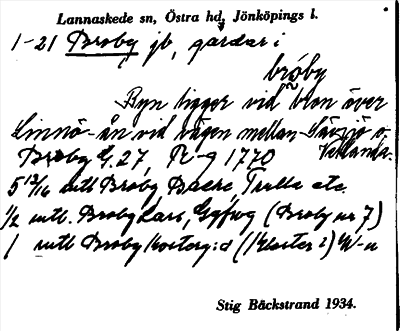 Lannaskede sn, Östra hd, Jönköpings l.
1-21 Broby jb, gårdar i
bróby
Byn ligger vid bron över
Linnö-ån vid vägen mellan Sävsjö o.
Vetlanda.
Broby G. 27, R-g 1770
5 13/16 mtl Broby, Backe, Trulla etc.
1/2 mtl. Broby Lars, (Broby nr 7)
1 mtl Broby
Stig Bäckstrand 1934.